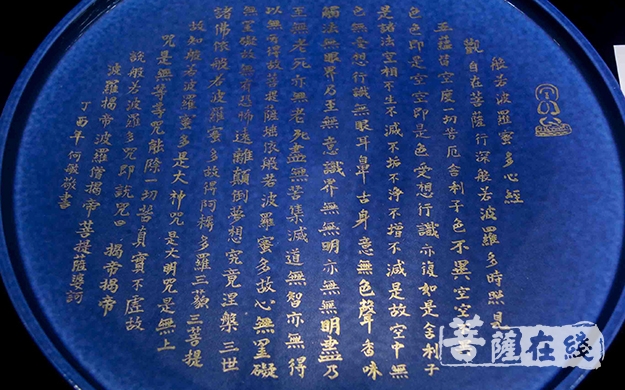 般若波羅蜜多心經
觀自在菩薩行深般若波羅多時照見
五蘊皆空度一切苦厄舍利子色不異空空
色色即是空空即是色受想行識亦復如是舍利子
是諸法空相不生不滅不垢不淨不增不減是故空中無
色無受想行識無眼耳鼻舌身意無色聲香味
觸法無眼界乃至無意識界無無明亦無無明盡乃
至無老死亦無老死盡無苦集滅道無智亦無得
以無所得故菩提薩埵依般若波羅蜜多故心無罣礙
無罣礙故無有恐怖遠離顛倒夢想究竟涅槃三世
諸佛依般若波羅蜜多故得阿耨多羅三藐三菩提
故知般若波羅蜜多是大神咒是大明咒是無上
咒是無等等咒能除一切苦真實不虛故
說般若波羅多咒即說咒曰 揭帝揭帝
波羅揭帝 波羅僧揭帝 菩提薩婆訶
丁酉年 何 書
菩薩在綫